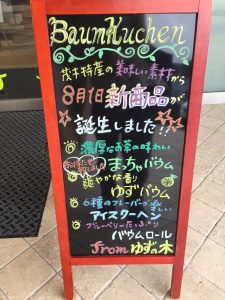 BaumKuchen
茨木特産の美味しい素材から
8月1日 新商品が
誕生しました!!
濃厚なお茶の味わい
お待たせしました
まっちゃバウム
爽やかな香り
ゆずバウム
6種のフレーバーが楽しい
アイスクーヘン
ブルーベリーたっぷり
バウムロール
from ゆずの木